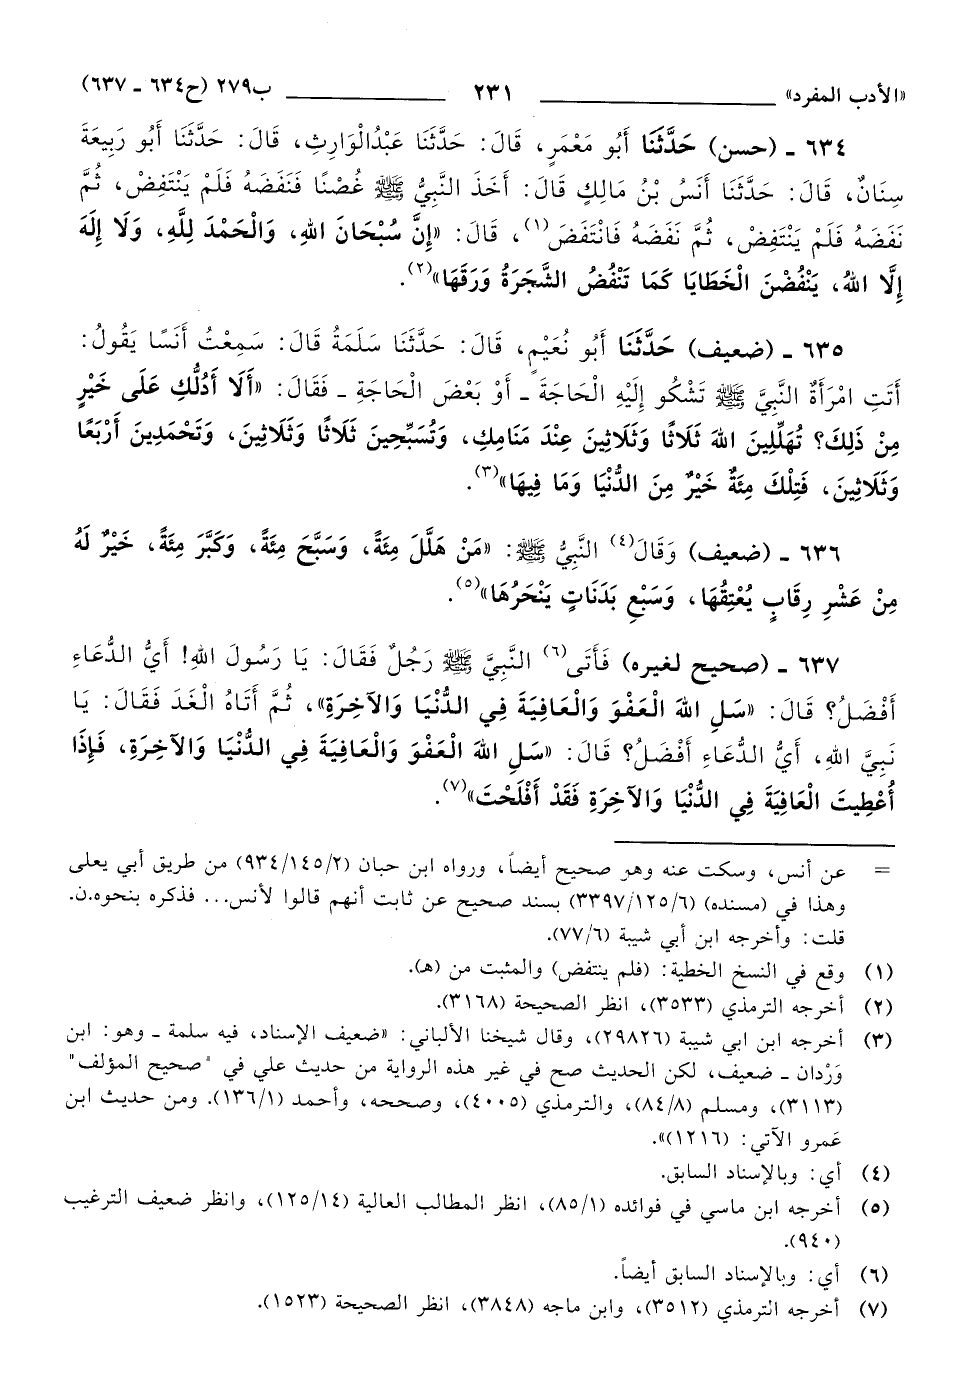 «الأدب المفرد» ٢٣١ ب٢٧٩ (ح٦٣٤ ـ ٦٣٧)
٦٣٤ ـ (حسن) حَدَّثَنَا أَبُو مَعْمَرٍ، قَالَ: حَدَّثَنَا عَبْدُالْوَارِثِ، قَالَ: حَدَّثَنَا أَبُو رَبِيعَةَ
سِنَانٌ، قَالَ: حَدَّثَنَا أَنَسُ بْنُ مَالِكٍ قَالَ: أَخَذَ النَّبِيُّ ﷺ غُصْنًا فَنَفَضَهُ فَلَمْ يَنْتَفِضْ، ثُمَّ
نَفَضَهُ فَلَمْ يَنْتَفِضْ، ثُمَّ نَفَضَهُ فَانْتَفَضَ(١)، قَالَ: «إِنَّ سُبْحَانَ اللهِ، وَالْحَمْدَ لِلَّهِ، وَلَا إِلَهَ
إِلَّا اللهُ، يَنْفُضْنَ الْخَطَايَا كَمَا تَنْفُضُ الشَّجَرَةُ وَرَقَهَا»(٢).
٦٣٥ ـ (ضعيف) حَدَّثَنَا أَبُو نُعَيْمٍ، قَالَ: حَدَّثَنَا سَلَمَةُ قَالَ: سَمِعْتُ أَنَسًا يَقُولُ:
أَتَتِ امْرَأَةٌ النَّبِيَّ ﷺ تَشْكُو إِلَيْهِ الْحَاجَةَ ـ أَوْ بَعْضَ الْحَاجَةِ ـ فَقَالَ: «أَلَا أَدُلُّكِ عَلَى خَيْرٍ
مِنْ ذَلِكَ؟ تُهَلِّلِينَ اللهَ ثَلَاثًا وَثَلَاثِينَ عِنْدَ مَنَامِكِ، وَتُسَبِّحِينَ ثَلَاثًا وَثَلَاثِينَ، وَتَحْمَدِينَ أَرْبَعًا
وَثَلَاثِينَ، فَتِلْكَ مِئَةٌ خَيْرٌ مِنَ الدُّنْيَا وَمَا فِيهَا»(٣).
٦٣٦ ـ (ضعيف) وَقَالَ(٤) النَّبِيُّ ﷺ: «مَنْ هَلَّلَ مِئَةً، وَسَبَّحَ مِئَةً، وَكَبَّرَ مِئَةً، خَيْرٌ لَهُ
مِنْ عَشْرِ رِقَابٍ يُعْتِقُهَا، وَسَبْعِ بَدَنَاتٍ يَنْحَرُهَا»(٥).
٦٣٧ ـ (صحيح لغيره) فَأَتَى(٦) النَّبِيَّ ﷺ رَجُلٌ فَقَالَ: يَا رَسُولَ اللهِ! أَيُّ الدُّعَاءِ
أَفْضَلُ؟ قَالَ: «سَلِ اللهَ الْعَفْوَ وَالْعَافِيَةَ فِي الدُّنْيَا وَالآخِرَةِ»، ثُمَّ أَتَاهُ الْغَدَ فَقَالَ: يَا
نَبِيَّ اللهِ، أَيُّ الدُّعَاءِ أَفْضَلُ؟ قَالَ: «سَلِ اللهَ الْعَفْوَ وَالْعَافِيَةَ فِي الدُّنْيَا وَالآخِرَةِ، فَإِذَا
أُعْطِيتَ الْعَافِيَةَ فِي الدُّنْيَا وَالآخِرَةِ فَقَدْ أَفْلَحْتَ»(٧).
= عن أنس، وسكت عنه وهو صحيح أيضاً، ورواه ابن حبان (٩٣٤/١٤٥/٢) من طريق أبي يعلى
وهذا في (مسنده) (٣٣٩٧/١٢٥/٦) بسند صحيح عن ثابت أنهم قالوا لأنس... فذكره بنحوه.ن.
قلت: وأخرجه ابن أبي شيبة (٧٧/٦).
(١) وقع في النسخ الخطية: (فلم ينتفض) والمثبت من (هـ).
(٢) أخرجه الترمذي (٣٥٣٣)، انظر الصحيحة (٣١٦٨).
(٣) أخرجه ابن ابي شيبة (٢٩٨٢٦)، وقال شيخنا الألباني: «ضعيف الإسناد، فيه سلمة ـ وهو: ابن
وَرْدان ـ ضعيف، لكن الحديث صح في غير هذه الرواية من حديث علي في "صحيح المؤلف"
(٣١١٣)، ومسلم (٨٤/٨)، والترمذي (٤٠٠٥)، وصححه، وأحمد (١٣٦/١). ومن حديث ابن
عَمرو الآتي: (١٢١٦)».
(٤) أي: وبالإسناد السابق.
(٥) أخرجه ابن ماسي في فوائده (٨٥/١)، انظر المطالب العالية (١٢٥/١٤)، وانظر ضعيف الترغيب
(٩٤٠).
(٦) أي: وبالإسناد السابق أيضاً.
(٧) أخرجه الترمذي (٣٥١٢)، وابن ماجه (٣٨٤٨)، انظر الصحيحة (١٥٢٣).